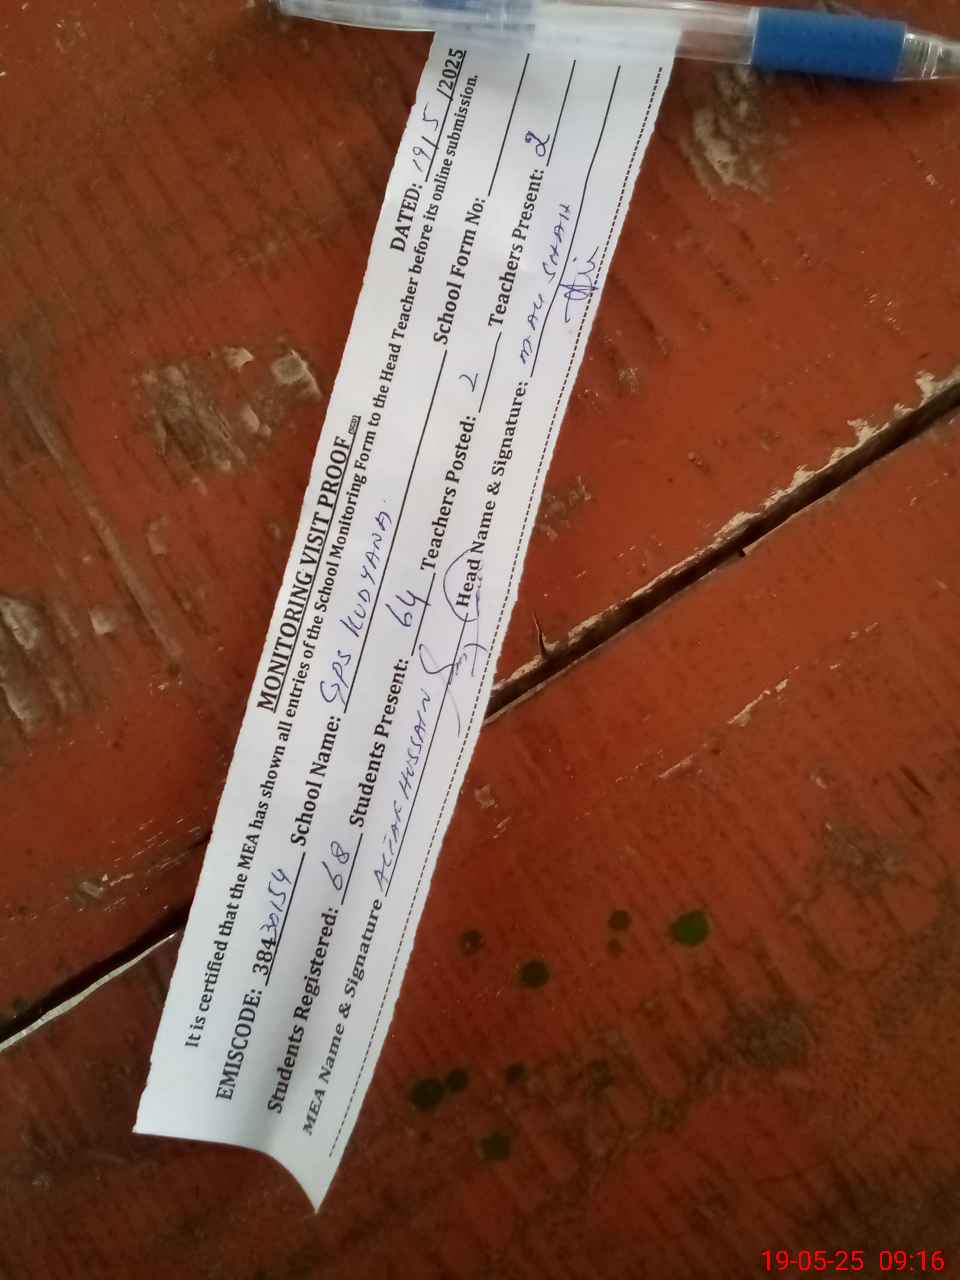 MONITORING VISIT PROOF
DATED: 19/5/2025
It is certified that the MEA has shown all entries of the School Monitoring Form to the Head Teacher before its online submission.
EMISCODE: 38430154 School Name: GPS KUDYANA School Form No:
Students Registered: 68 Students Present: 64 Teachers Posted: 2 Teachers Present: 2
MEA Name & Signature ALTAF HUSSAIN (Head Name & Signature: M. ALI SHAH
19-05-25 09:16